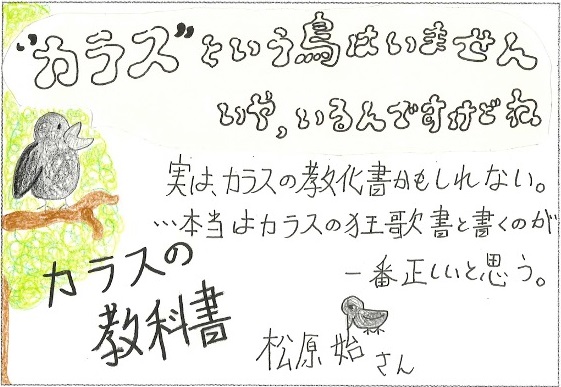 “カラス”という鳥はいません
いや,いるんですけどね
実は、カラスの教化書かもしれない。
…本当はカラスの狂歌書と書くのが
一番正しいと思う。
カラスの
教科書
松原始さん